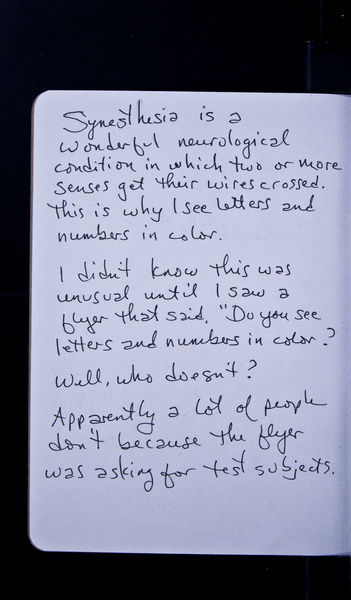 Synesthesia is a
wonderful neurological
condition in which two or more
senses get their wires crossed.
This is why I see letters and
numbers in color.
I didn't know this was
unusual until I saw a
flyer that said, "Do you see
letters and numbers in color?
Well, who doesn't?
Apparently a lot of people
don't because the flyer
was asking for test subjects.